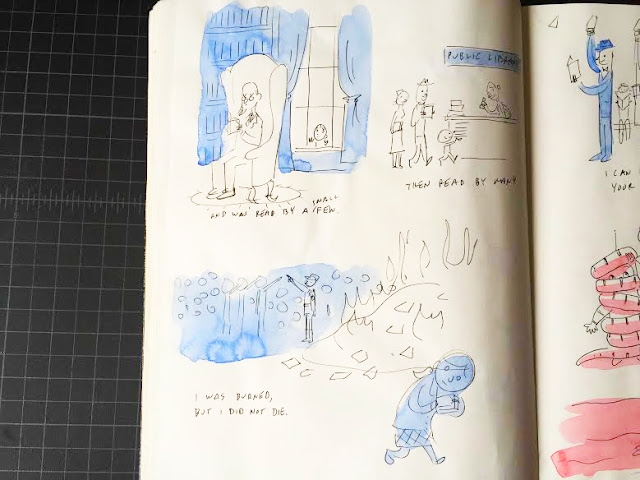 PUBLIC LIBRARY
SMALL
AND WAS READ BY A FEW.
THEN READ BY MANY
I CAN
YOUR
I WAS BURNED,
BUT I DID NOT DIE.